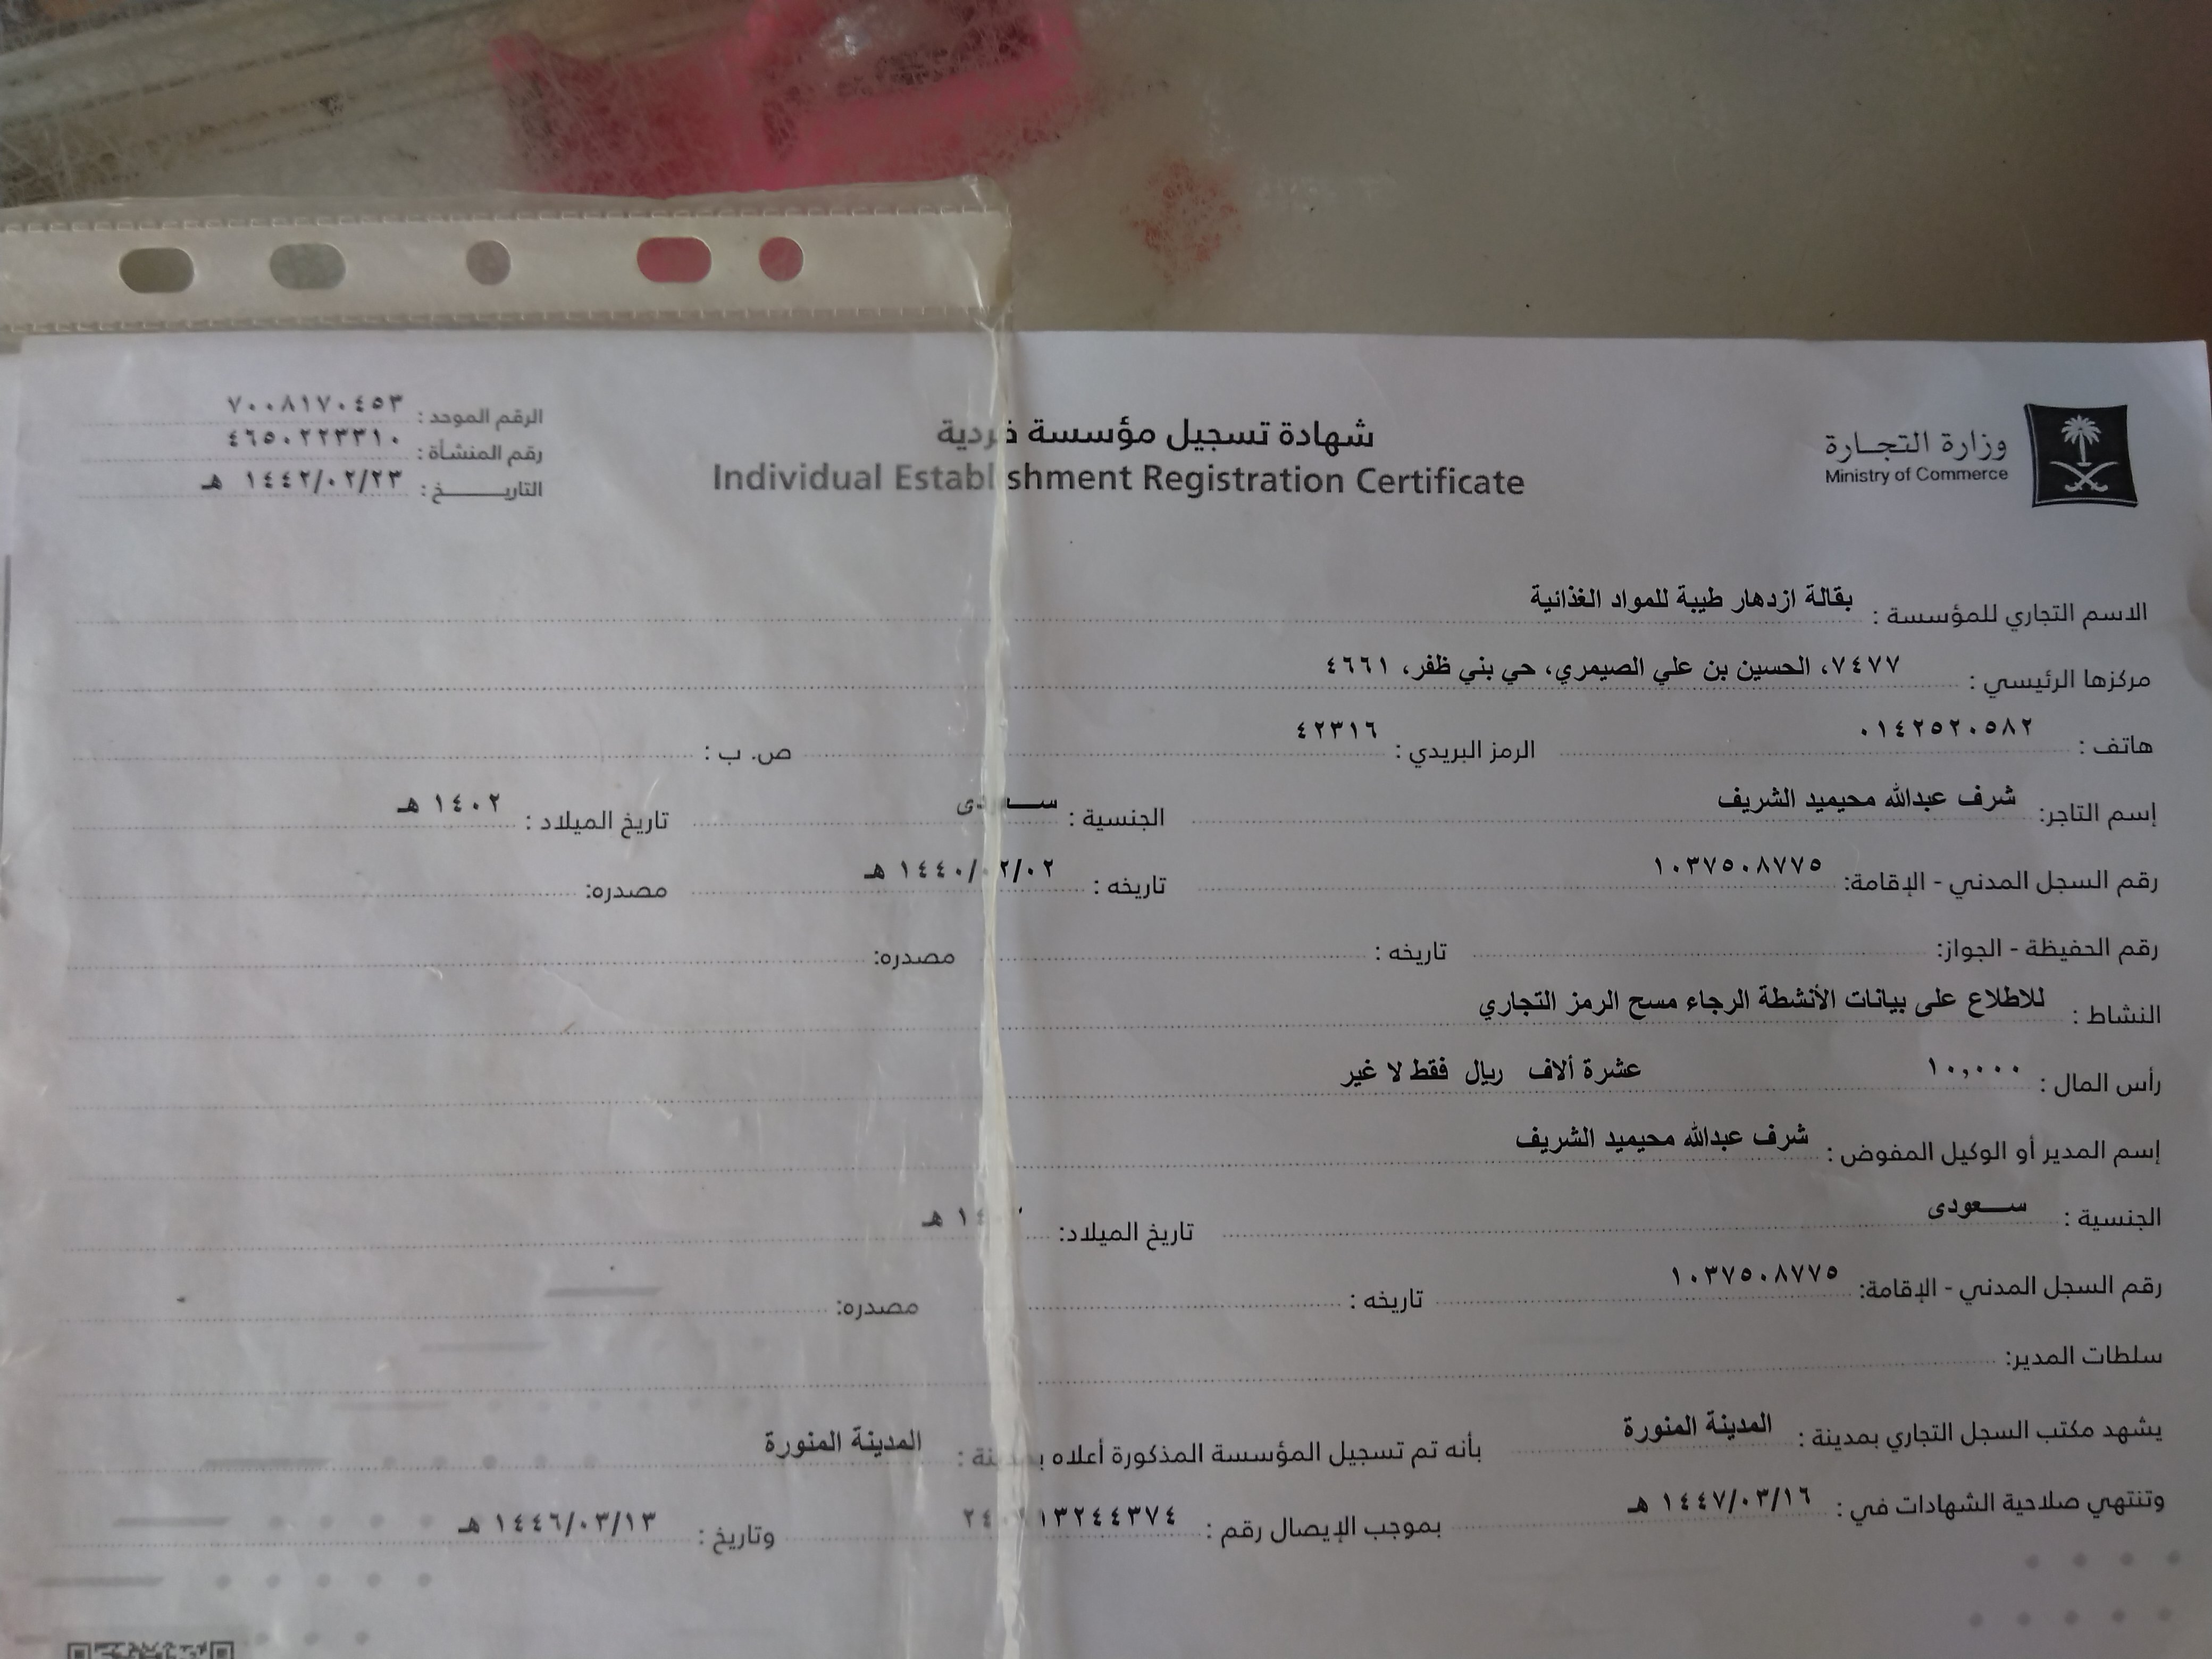 وزارة التجارة
Ministry of Commerce
شهادة تسجيل مؤسسة فردية
Individual Establishment Registration Certificate
الرقم الموحد : ٧٠٠٨١٧٠٤٥٣
رقم المنشأة : ٤٦٥٠٢٢٣٣١٠
التاريخ : ١٤٤٢/٠٢/٢٣ هـ
الاسم التجاري للمؤسسة : بقالة ازدهار طيبة للمواد الغذائية
مركزها الرئيسي : ٧٤٧٧، الحسين بن علي الصيمري، حي بني ظفر، ٤٦٦١
هاتف : ٠١٤٢٥٢٠٥٨٢ الرمز البريدي : ٤٢٣١٦ ص. ب :
إسم التاجر: شرف عبدالله محيميد الشريف الجنسية : سعودى تاريخ الميلاد : ١٤٠٢ هـ
رقم السجل المدني - الإقامة: ١٠٣٧٥٠٨٧٧٥ تاريخه : ١٤٤٠/٠٢/٠٢ هـ مصدره:
رقم الحفيظة - الجواز: تاريخه : مصدره:
النشاط : للاطلاع على بيانات الأنشطة الرجاء مسح الرمز التجاري
رأس المال : ١٠,٠٠٠ عشرة ألاف ريال فقط لا غير
إسم المدير أو الوكيل المفوض : شرف عبدالله محيميد الشريف
الجنسية : سعودى تاريخ الميلاد: هـ
رقم السجل المدني - الإقامة: ١٠٣٧٥٠٨٧٧٥ تاريخه : مصدره:
سلطات المدير:
يشهد مكتب السجل التجاري بمدينة : المدينة المنورة بأنه تم تسجيل المؤسسة المذكورة أعلاه بمدينة : المدينة المنورة
وتنتهي صلاحية الشهادات في : ١٤٤٧/٠٣/١٦ هـ بموجب الإيصال رقم : وتاريخ : ١٤٤٦/٠٣/١٣ هـ